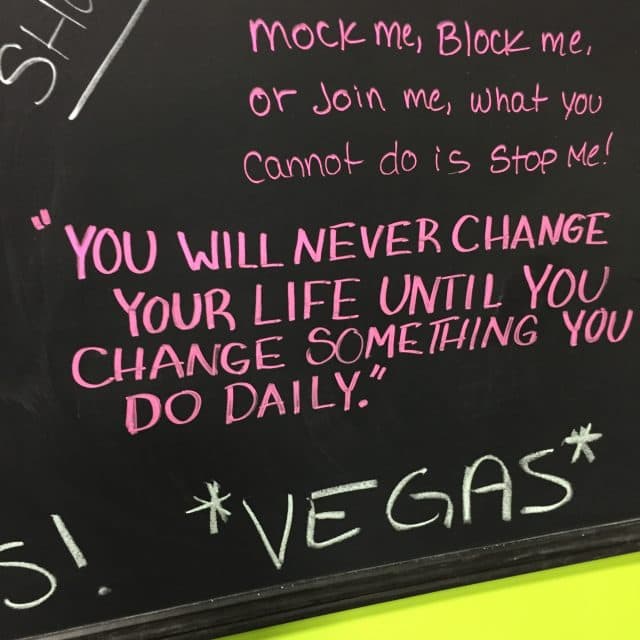 SHO
Mock me, Block me,
or Join me, what you
Cannot do is Stop Me!
"YOU WILL NEVER CHANGE
YOUR LIFE UNTIL YOU
CHANGE SOMETHING YOU
DO DAILY."
*VEGAS*
S!